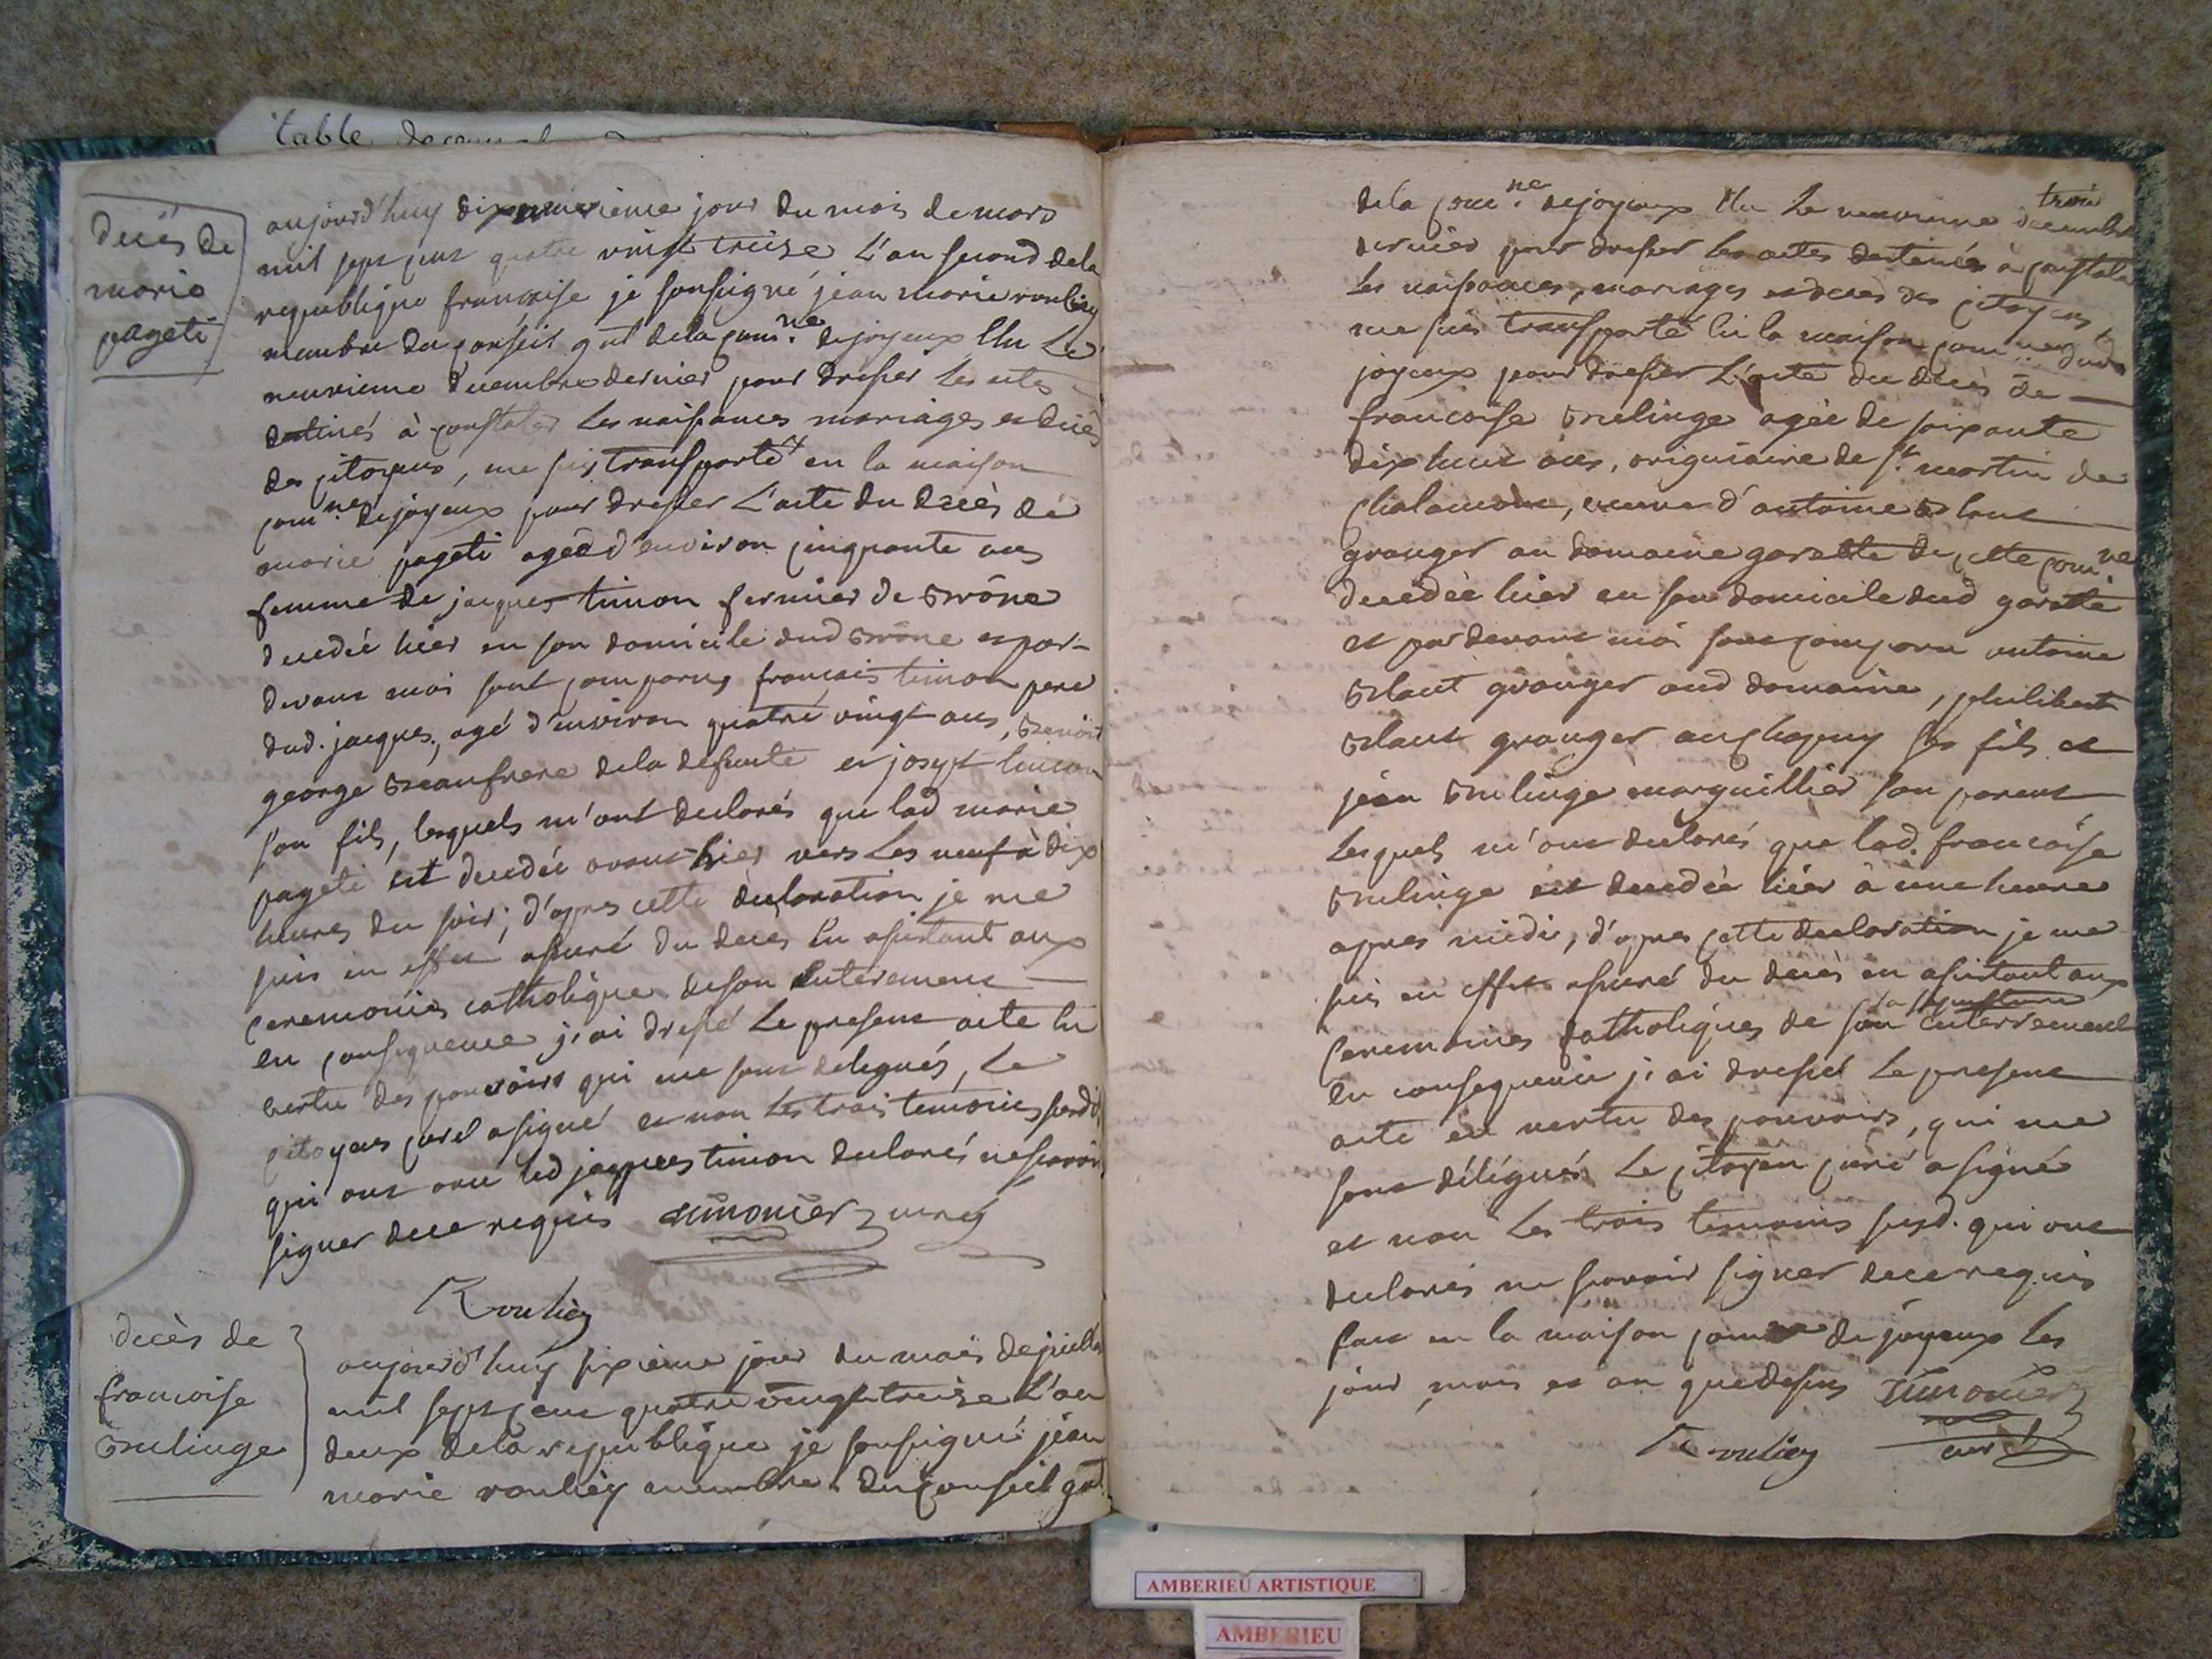 table
decès de
marie
pageti
aujourd'huy dixneuvieme jour du mois de mars
mil sept cens quatre vingt treize L'an second dela
republique françoise je soussigné jean marie rouliey
membre du conseil gnl dela com.ne de joyeux Elu Le
neuvieme decembre dernier pour dresser Les actes
destinés à constater Les naissances mariages et decès
des citoyens, me suis transporté en la maison
com.ne de joyeux pour dresser L'acte du decès de
marie pageti agée d'environ cinquante ans
femme de jacques timon fermier de Brône
decedée hier en son domicile dud Brône et par-
devant moi sont comparus françois timon pere
dud. jacques, agé d'environ quatre vingt ans, Benoit
george Beaufrere dela defunte et josept timon
son fils, lesquels m'ont declarés que lad marie
pageti est decedée avant hier vers Les neuf à dix
heures du soir; d'apres cette declaration je me
suis en effet assuré du deces En assistant aux
ceremonies catholique de son Enterement
en consequence j'ai dressé Le present acte En
vertu des pouvoirs qui me sont delegués, Le
citoyens curé a signé et non Les trois temoins susd.
qui ont avec led jacques timon declarés ne sçavoir
signer de ce requis simonier curé
Rouliey
decès de
françoise
Brulinge
aujourd'huy sixieme jour du mois de juillet
mil sept cens quatre vingt treize L'an
deux dela republique je soussigné jean
marie rouliey membre du conseil gnl
dela com.ne de joyeux Elu Le neuvieme decembre
dernier pour dresser Les actes destinés à constater
Les naissances, mariages et decès des citoyens,
me suis transporté En la maison com.ne dud
joyeux pour dresser L'acte du decès de
françoise Brulinge agée de soixante
dix huit ans, originaire de st. martin de
Chalamont, veuve d'antoine Blanc
granger au domaine garatte de cette com.ne
decedée hier en son domicile dud garatte
et pardevant moi sont comparu antoine
Blanc granger aud domaine, philibert
Blanc granger au Chagny ses fils et
jean Brulinge marguillier son parent
Lesquels m'ont declarés que lad. françoise
Brulinge est decedée hier à une heure
apres midi, d'apres cette declaration je me
suis en effet assuré du decès en assistant aux
Ceremonies Catholiques de son Enterrement
En consequence j'ai dressé Le present
acte en vertu des pouvoirs, qui me
sont délégués Le citoyen curé a signé
et non Les trois temoins susd. qui ont
declarés ne savoir signer de ce requis
fait en la maison com.ne de joyeux Les
jour, mois et an que dessus Simonier
Rouliey curé
AMBERIEU ARTISTIQUE
AMBERIEU